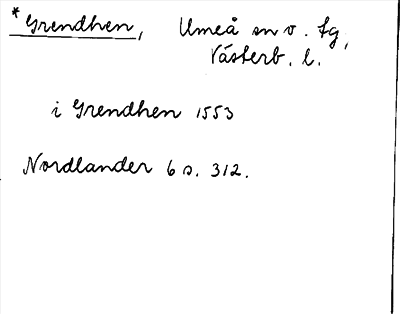 *Grendhen, Umeå sn v. fg,
Västerb. l.
i Grendhen 1553
Nordlander 6 s. 312.